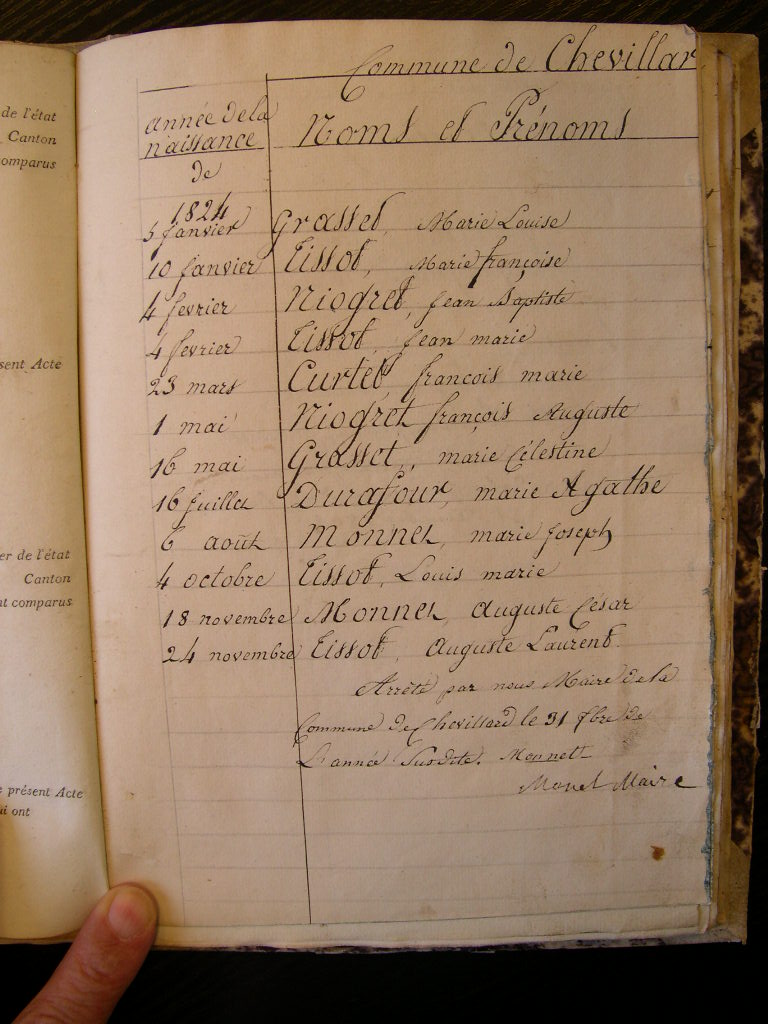 de l'état
Canton
comparus
sent Acte
er de l'état
Canton
nt comparus
e présent Acte
ui ont
Commune de Chevillar
année de la
naissance
Noms et Prénoms
de
1824
5 Janvier Grasset, Marie Louise
10 Janvier Tissot, Marie françoise
4 fevrier Niogret, Jean Baptiste
4 fevrier Tissot, Jean marie
23 mars Curtet françois marie
1 mai Niogret françois Auguste
16 mai Grasset, marie Célestine
16 Juillet Durafour, marie Agathe
6 août Monnet, marie Joseph
4 octobre Tissot, Louis marie
18 novembre Monnet, Auguste César
24 novembre Tissot, Auguste Laurent.
Arrêté par nous Maire de la
Commune de Chevillard le 31 de
L'année Susdite. Monnett
Maire